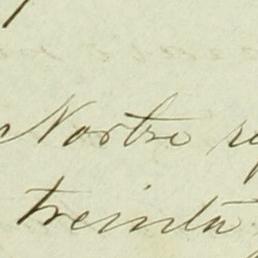 Nortre
treinta